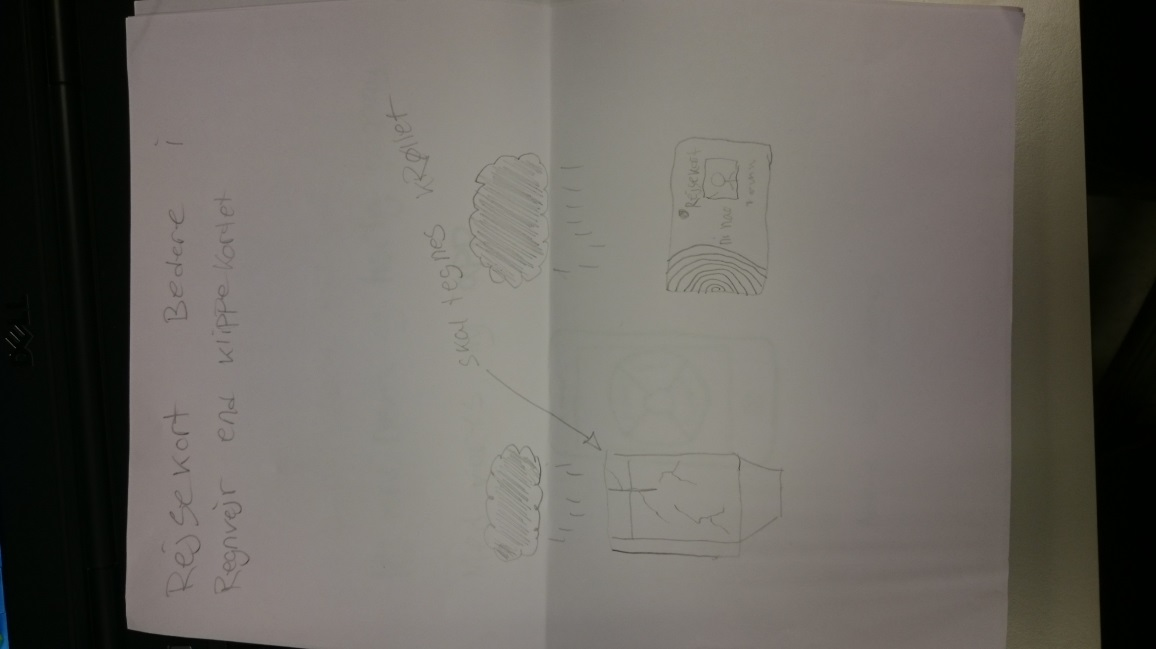 Rejsekort Bedere i
Regnvejr end klippekortet
skal tegnes krøllet
Rejsekort
DELL